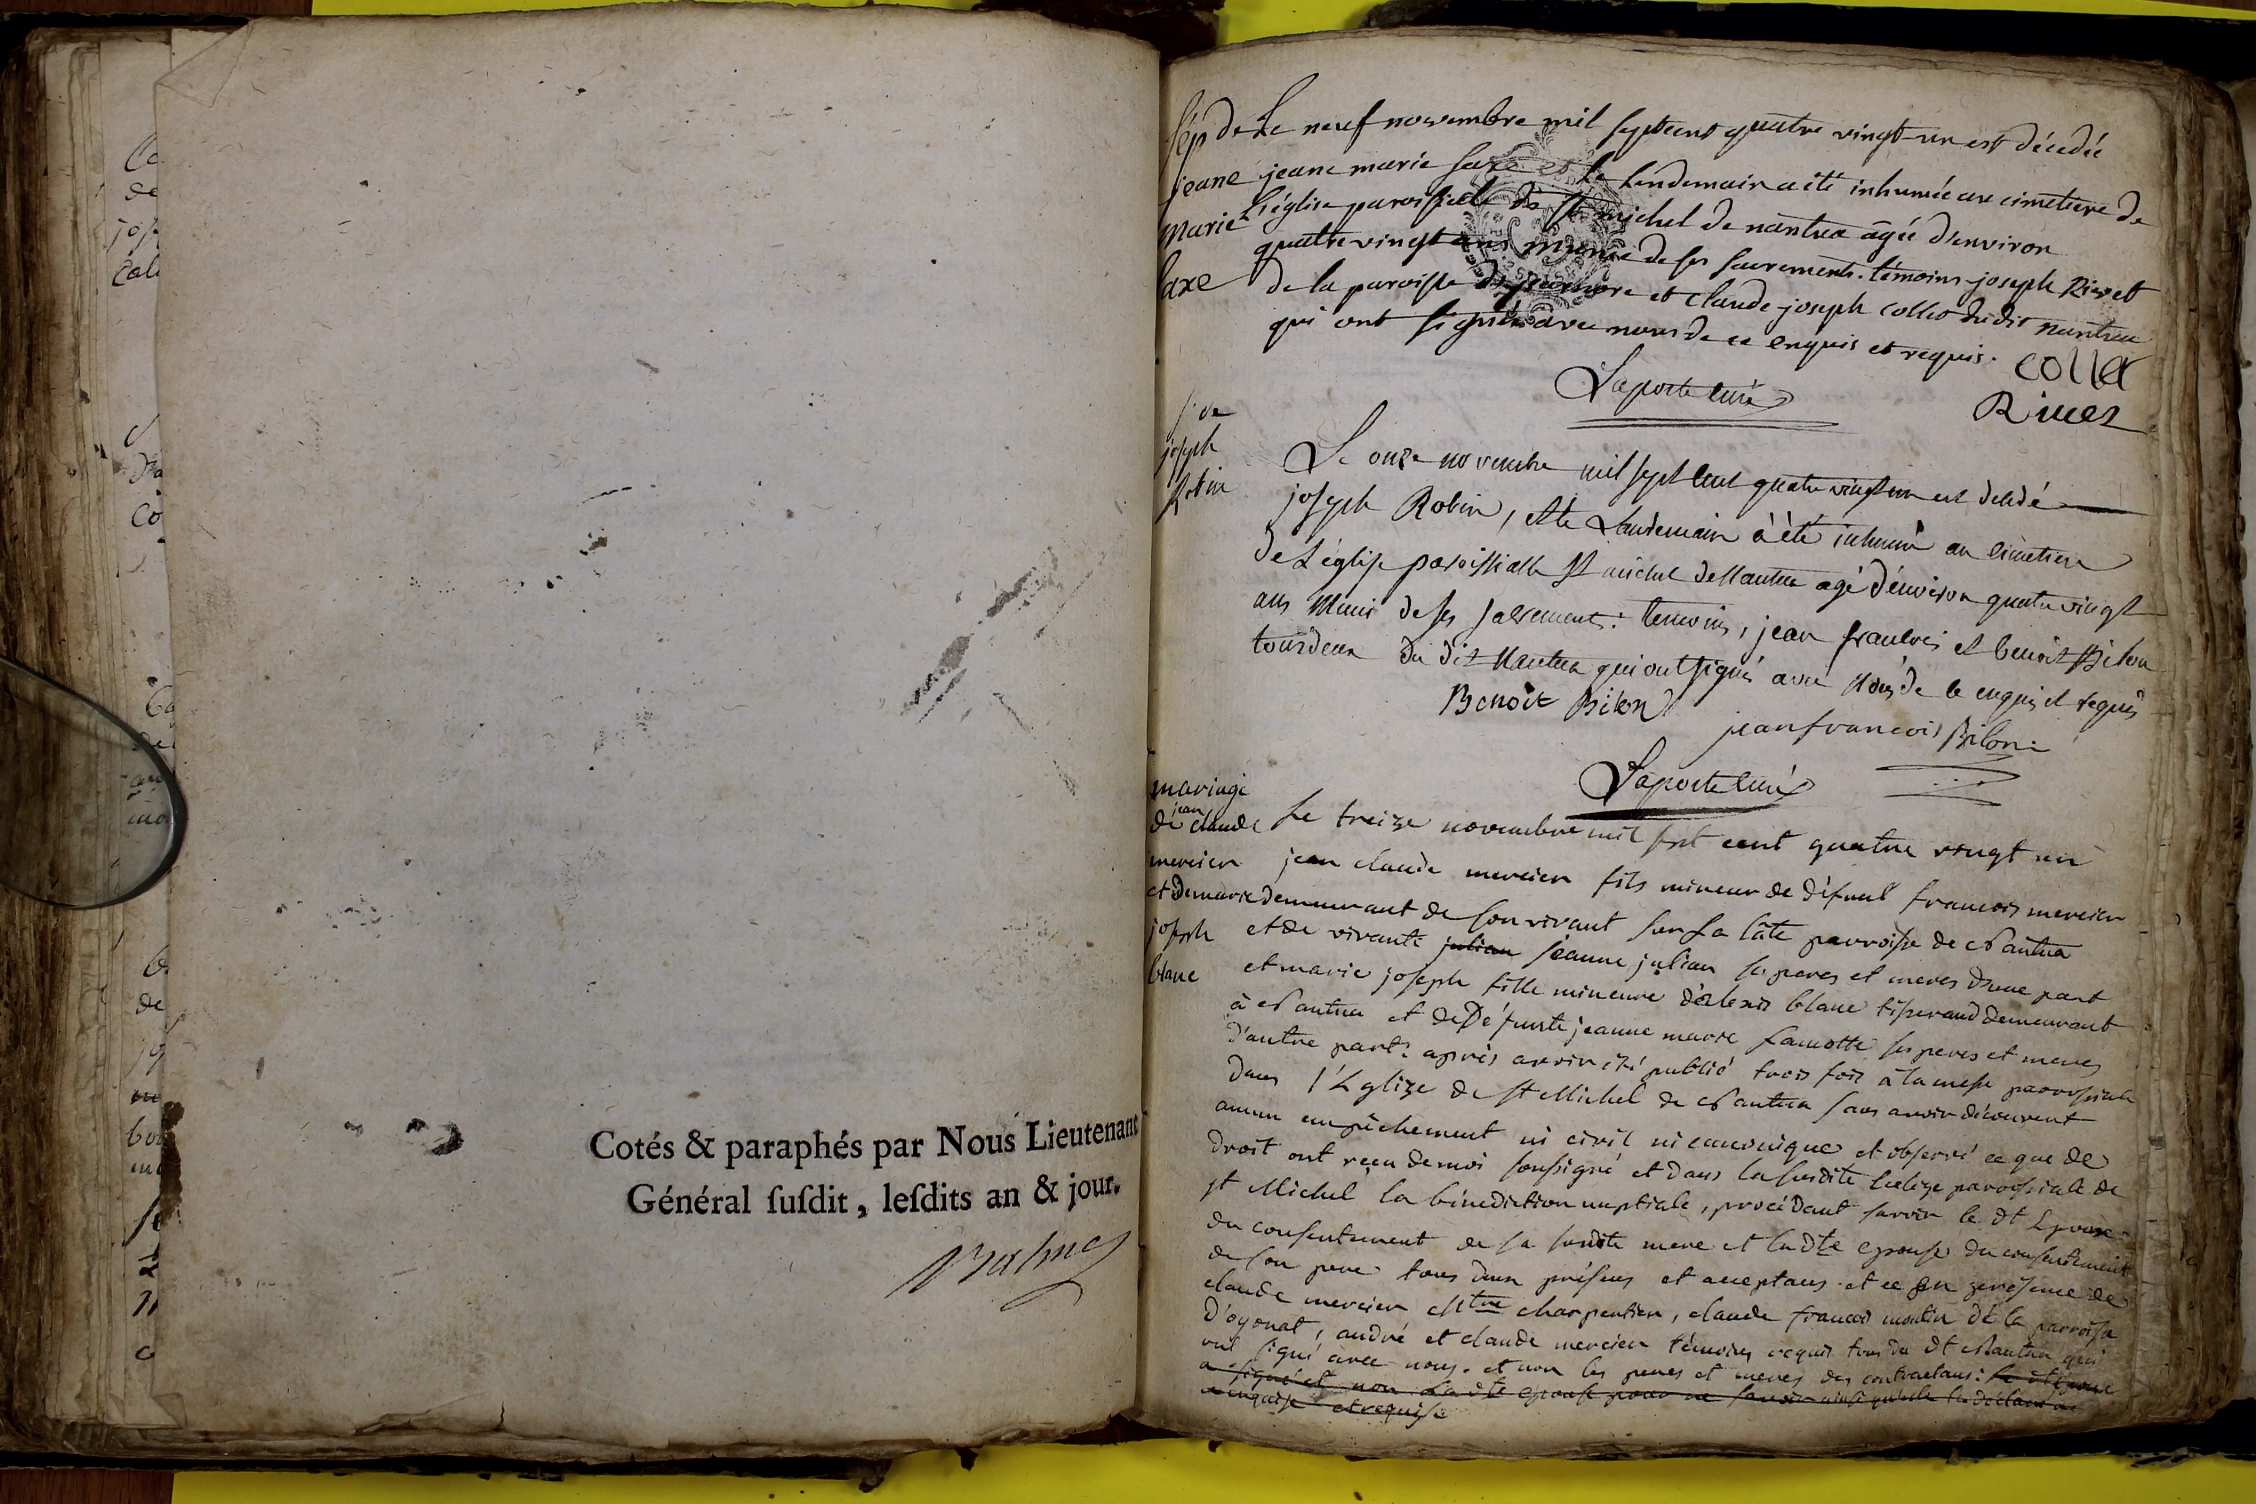 Cotés & paraphés par Nous Lieutenant
Général ſuſdit, leſdits an & jour.
sép de
jeane
marie
saxe
Le neuf novembre mil septcent quatre vingt-un est décedée
jeane marie saxe et le lendemain a été inhumée au cimetiere de
L'église paroissiale de st michel de nantua âgée d'environ
quatre vingt ans munie de ses sacrements. témoins joseph Rivet
de la paroisse de et claude joseph collet dudit nantua
qui ont signés avec nous de ce enquis et requis.
collet
Laporte curé
Rivet
s. de
joseph
Robin
Le onze novembre mil sept cent quatre vingt un est decedé
joseph Robin, et le Landemain à èté inhumé au cimetiere
de L'églisse paroissialle st michel de Nantua agé d'environ quatre vingt
ans muni de ses sacrements: temoins, jean francois et benoit Bilon
tourdeur du dit Nantua qui ont signés avec Nous de ce enquis et requis
Benoit Bilon
jean francois Bilon
Laporte curé
mariage
de jean claude
mercier
et de marie
joseph
blanc
Le treize novembre mil sept cent quatre vingt un
jean claude mercier fils mineur de défunt francois mercier
demeurant de son vivant sur La Côte parroisse de Nantua
et de vivante julian jeanne julian ses peres et meres d'une part
et marie joseph fille mineure d'alexis blanc tisserand demeurant
à Nantua et de Défunte jeanne marie Lamotte ses peres et meres
d'autre part: après avoir été publié trois fois à la messe parroissiale
dans l'Eglize de st Michel de Nantua sans avoir découvert
aucun empêchement ni civil ni canonique et observé ce que de
droit ont reçu de moi soussigné et dans la susdite Eglize parroissiale de
st Michel la bénédiction nuptiale, procédant savoir le dt Epoux
du consentement de sa susdte mere et ladte epouse du consentement
de son pere tous deux présens et acceptans. et ce en présence de
claude mercier Mtre charpentier, claude francois moulin de la parroisse
D'oyonat, andré et claude mercier témoins requis tous du dt Nantua qui
ont signé avec nous. et non les peres et meres des contractans: le dt epoux
a signé et non La dte epouse pour ne savoir ainsi qu'elle l'a déclaré
enquise et requise